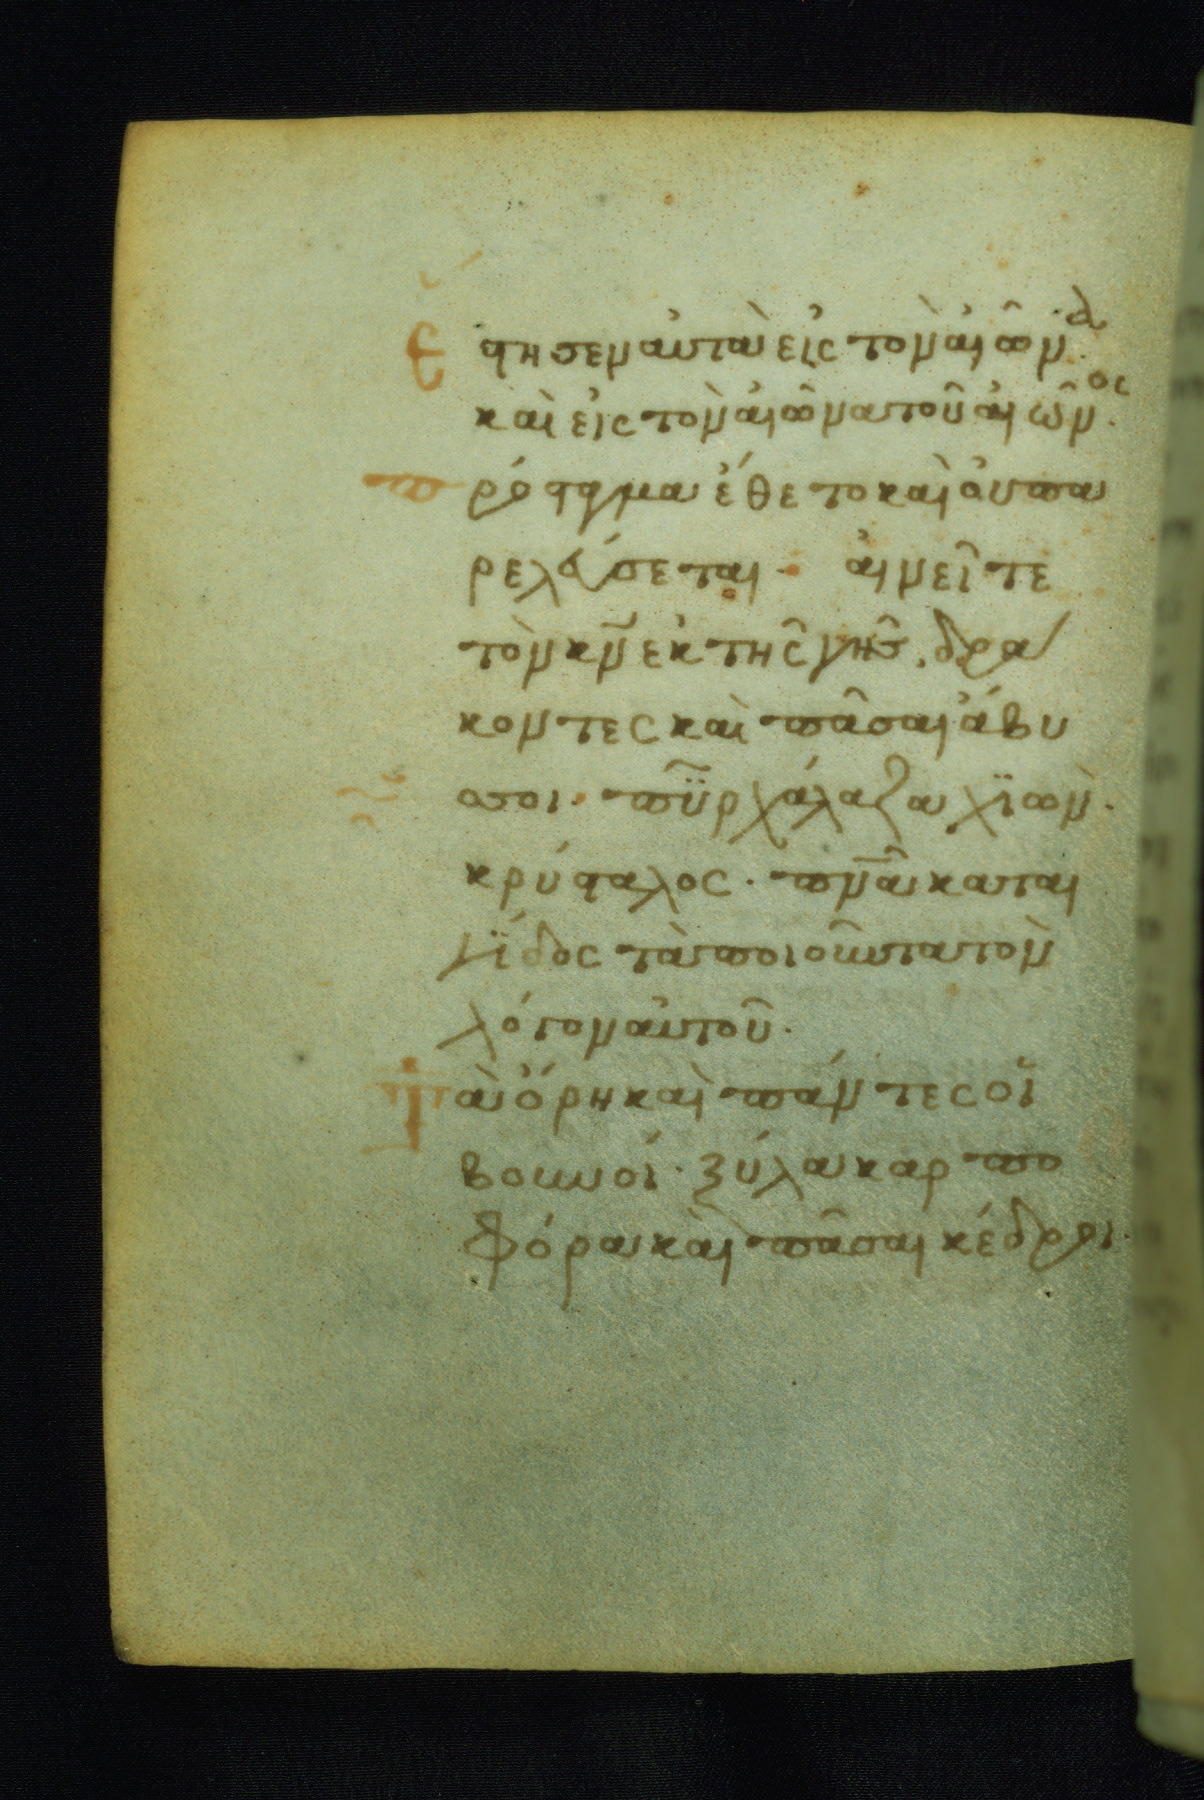 Ἔστησεν αὐτὰ εἰς τὸν αἰῶνα·
καὶ εἰς τὸν αἰῶνα τοῦ αἰῶνος·
πρόσταγμα ἔθετο καὶ οὐ πα
ρελεύσεται· αἰνεῖτε
τὸν κν̄ ἐκ τῆς γῆς, δρά
κοντες καὶ πᾶσαι ἄβυ
σσοι· πῦρ χάλαζα χϊὼν·
κρύσταλος· πνᾶ καται
γΐδος τὰ ποιοῦντα τὸν
λόγον αὐτοῦ·
Τὰ ὄρη καὶ πάντες οἱ
βουνοί· ξύλα καρπο
φόρα καὶ πᾶσαι κέδροι·